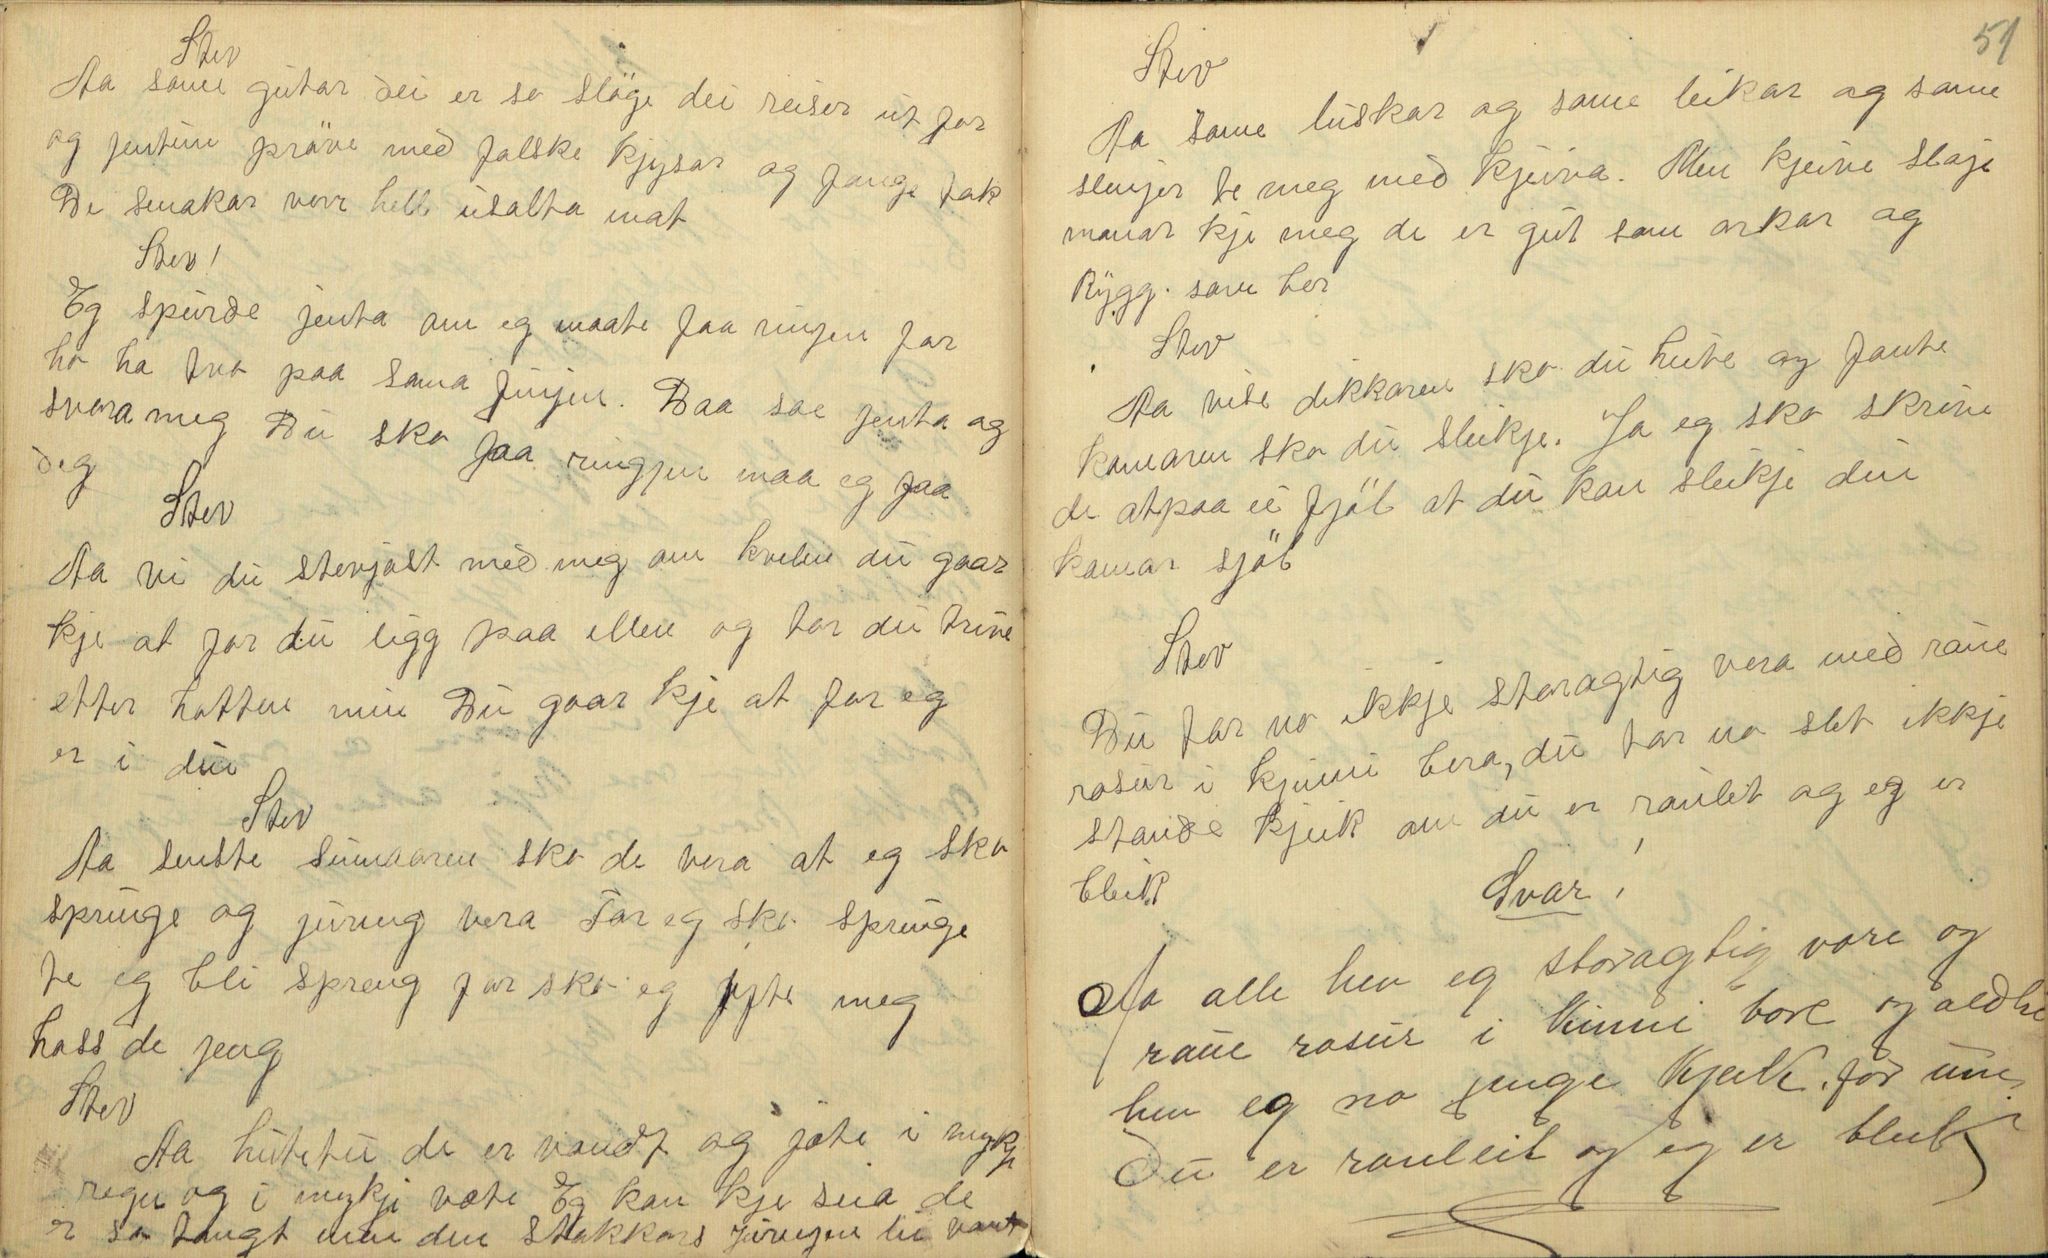 Stev
Aa some gutar dei er so slöge dei reiser ut for
og jentun pröve med falske kjysar og fange tak
De smakar verr hell usalta mat
Stev!
Eg spurde jenta om eg maate faa ringen for
ho ha tvo paa sama finjen. Daa sae jenta og
svora meg Du sko faa ringjen maa eg faa
deg
Stev
Aa vi du stevjast med meg om kvelen du gaar
kje at for du ligg paa illen og tar du trive
etter hotten min Du gaar kje at for eg
er i din
Stev
Aa senste sumaaren sko de vera at eg sko
springe og jureng vera For eg sko springe
te eg bli spreng for sko eg fyte meg
hass de jeng
Stev
Aa hutetu de er vondt og jæte i mykje
regn og i mykji væte Eg kan kje seia de
er so tongt men den stakkars jurngen li vont
51
Stev
Aa some luskar og some leikar og some
slenjer te meg med kjeiva. Men kjeive slaje
monar kje meg de er gut som orkar og
Rygg. som ber
Stev
Aa vise dikkaren sko du hute og fante
komaren sko du sleikje. Ja eg sko skrive
de atpaa ei fjöl at du kan sleikje din
komar sjöl
Stev
Du tar no ikkje storagtig vera med raue
rosur i kjinni bera, du tar no slet ikkje
stande kjeik om du er rauleit og eg er
bleik
Svar!
Aa alle hev eg storagtig vore og
raue rosur i kinni bore og aldri
hev eg no jenge kjeik. for um
Du er rauleit og eg er bleik